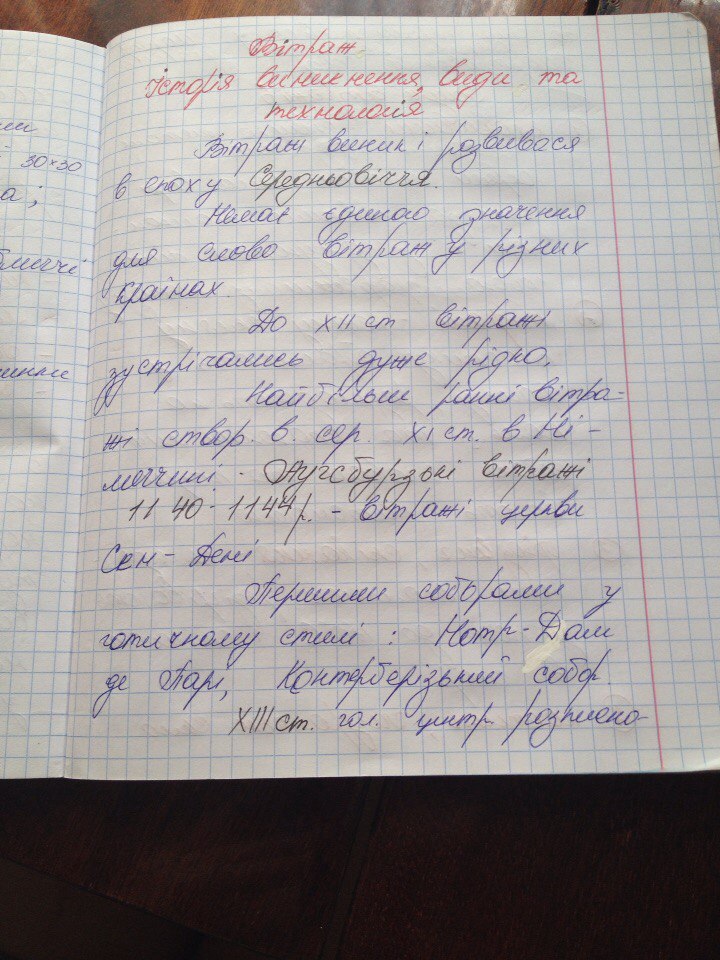 Вітраж.
Історія виникнення, види та
технологія
Вітраж виник і розвивася
в епоху Середньовіччя
Немає єдиного значення
для слово вітраж у різних
країнах.
До XII ст вітражі
зустрічались дуже рідко.
Найбільш ранні вітра-
жі створ. в. сер. XI ст. в Ні-
меччині - Аугсбурзькі вітражі
1140-1144р. - вітражі церкви
Сен-Дені
Першими соборами у
готичному стилі: Нотр-Дам
де Парі, Контерберізький собор.
XIII ст. гол. центр. розписно-
30×30
а;